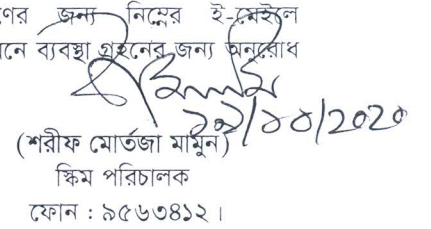 ণের জন্য নিম্নের ই-মেইলে
নে ব্যবস্থা গ্রহনের জন্য অনুরোধ
/২০২০
(শরীফ মোর্তজা মামুন)
স্কিম পরিচালক
ফোন : ৯৫৬৩৪১২ ।